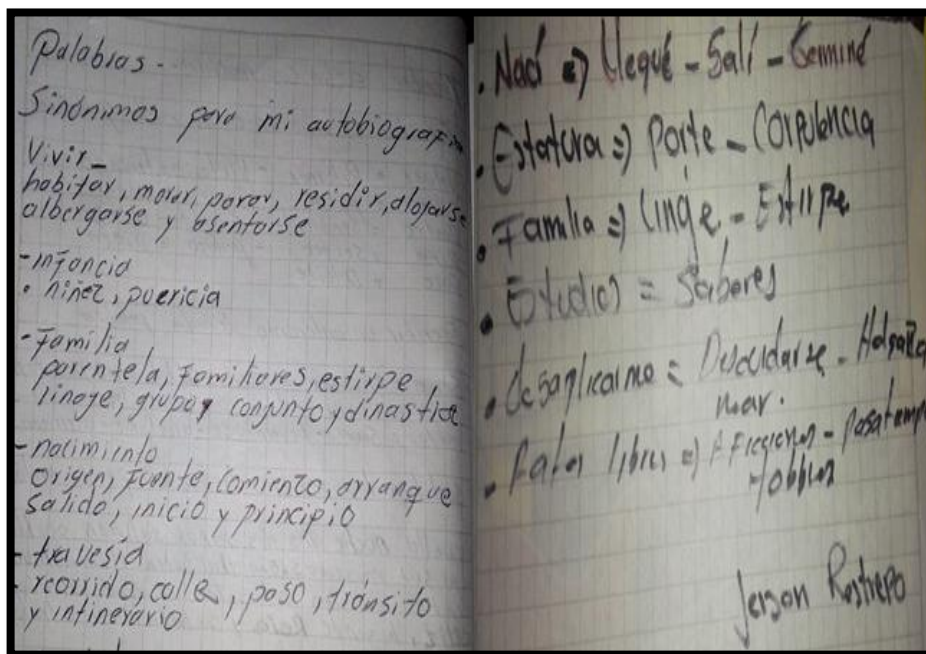 Palabras -
Sinónimos para mi autobiografía
Vivir -
habitar, morar, parar, residir, alojarse
albergarse y asentarse
- infancia
• niñez, puericia
- familia
parentela, familiares, estirpe
linaje, grupo, conjunto y dinastia
- nacimiento
origen, fuente, comienzo, arranque
salida, inicio y principio
- travesía
- recorrido, calle, paso, tránsito
y intinerario
• Nací => llegué - Salí - Germiné
• Estatura => Porte - Corpulencia
• Familia => Linge - Estirpe
• Estudios = Saberes
• desaplicarme = Descuidarse -
mar.
• Ratos libres => - Pasatiempo
Hobbies
Jerson Restrepo